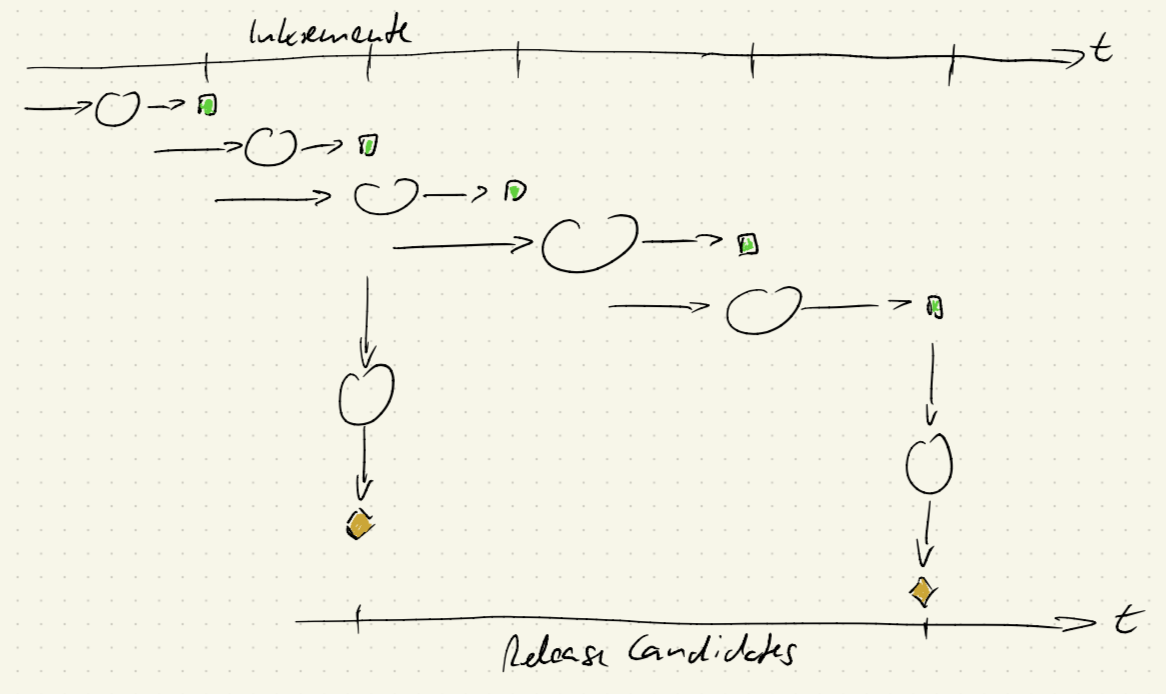 Inkremente
t
t
Release Candidates